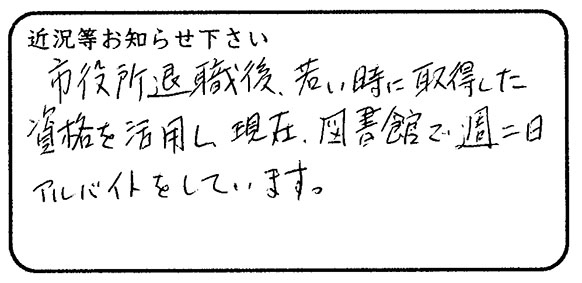 近況等お知らせ下さい
市役所退職後、若い時に取得した
資格を活用し、現在、図書館で週二日
アルバイトをしています。